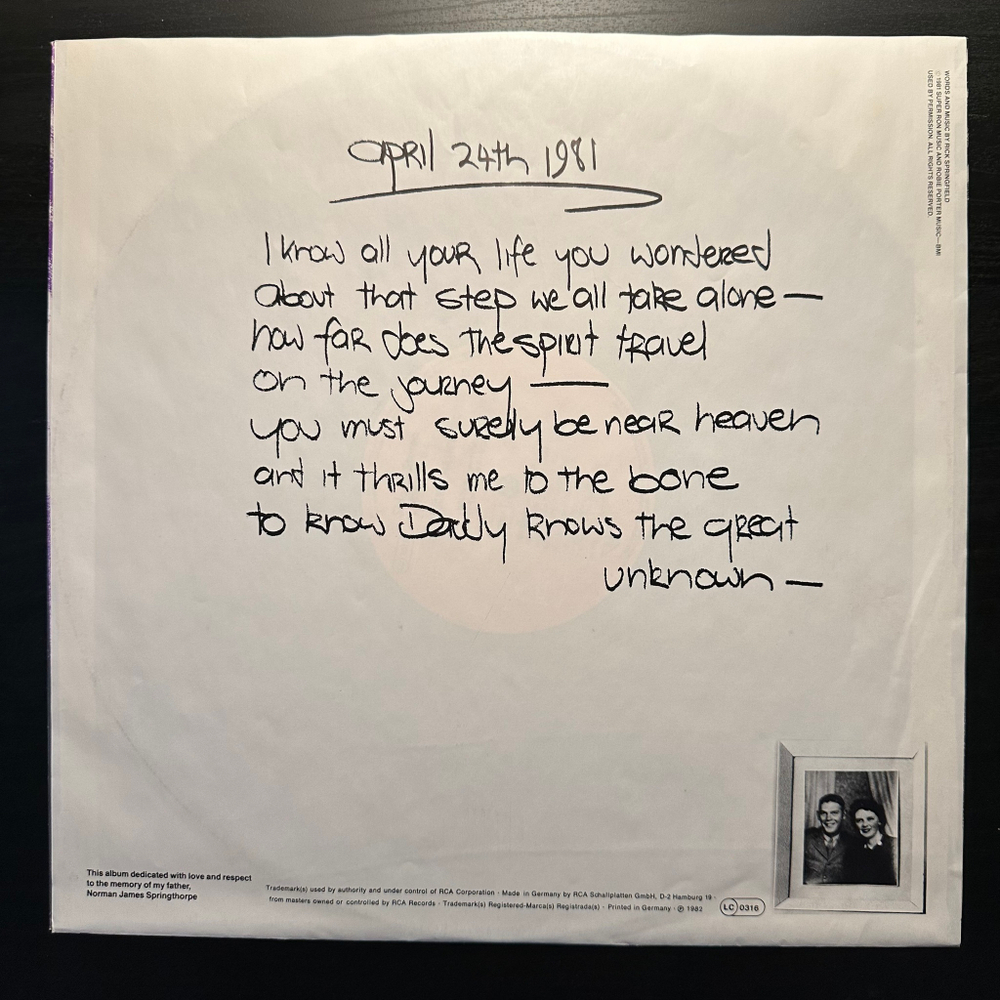 April 24th 1981
I know all your life you wondered
about that step we all take alone —
how far does the spirit travel
on the journey —
you must surely be near heaven
and it thrills me to the bone
to know Daddy knows the great
unknown —
WORDS AND MUSIC BY RICK SPRINGFIELD
© 1981 SUPER RON MUSIC AND ROBIE PORTER MUSIC—BMI
USED BY PERMISSION. ALL RIGHTS RESERVED.
This album dedicated with love and respect
to the memory of my father,
Norman James Springthorpe
Trademark(s) used by authority and under control of RCA Corporation · Made in Germany by RCA Schallplatten GmbH, D-2 Hamburg 19 ·
from masters owned or controlled by RCA Records · Trademark(s) Registered-Marca(s) Registrada(s) · Printed in Germany · ℗ 1982
LC 0316